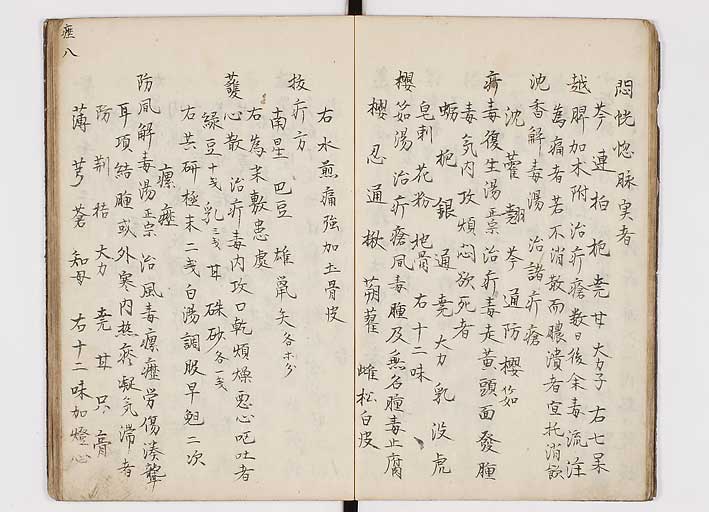 悶恍惚脉実者
芩連柏梔尭甘大力子右七味
越脾加朮附治疔瘡数日後余毒流注
為痛者若不消散而膿潰者宜托消飲
沈香解毒湯治諸疔瘡
沈藿翹芩通防櫻筎
疔毒復生湯正宗治疔毒走黄頭面發腫
毒気内攻煩悶欲死者
蛎梔銀通尭大力乳没虎
皂刺花粉地骨右十二味
櫻筎湯治疔瘡風毒腫及無名腫毒止腐
櫻忍通楸蒴藋雌松白皮
右水煎痛強加土骨皮
抜疔方
南星巴豆雄鼠矢各等分
右為末敷患處
護心散治疔毒内攻口乾煩燥悪心呕吐者
緑豆十戔乳三戔甘硃砂各一戔
右共研極末二戔白湯調服早晩二次
瘰癧
防風解毒湯正宗治風毒瘰癧労傷湊聾
耳項結腫或外寒内熱痰凝気滞者
防荆桔大力尭甘只膏
薄芎蒼知母右十二味加燈心
癧八